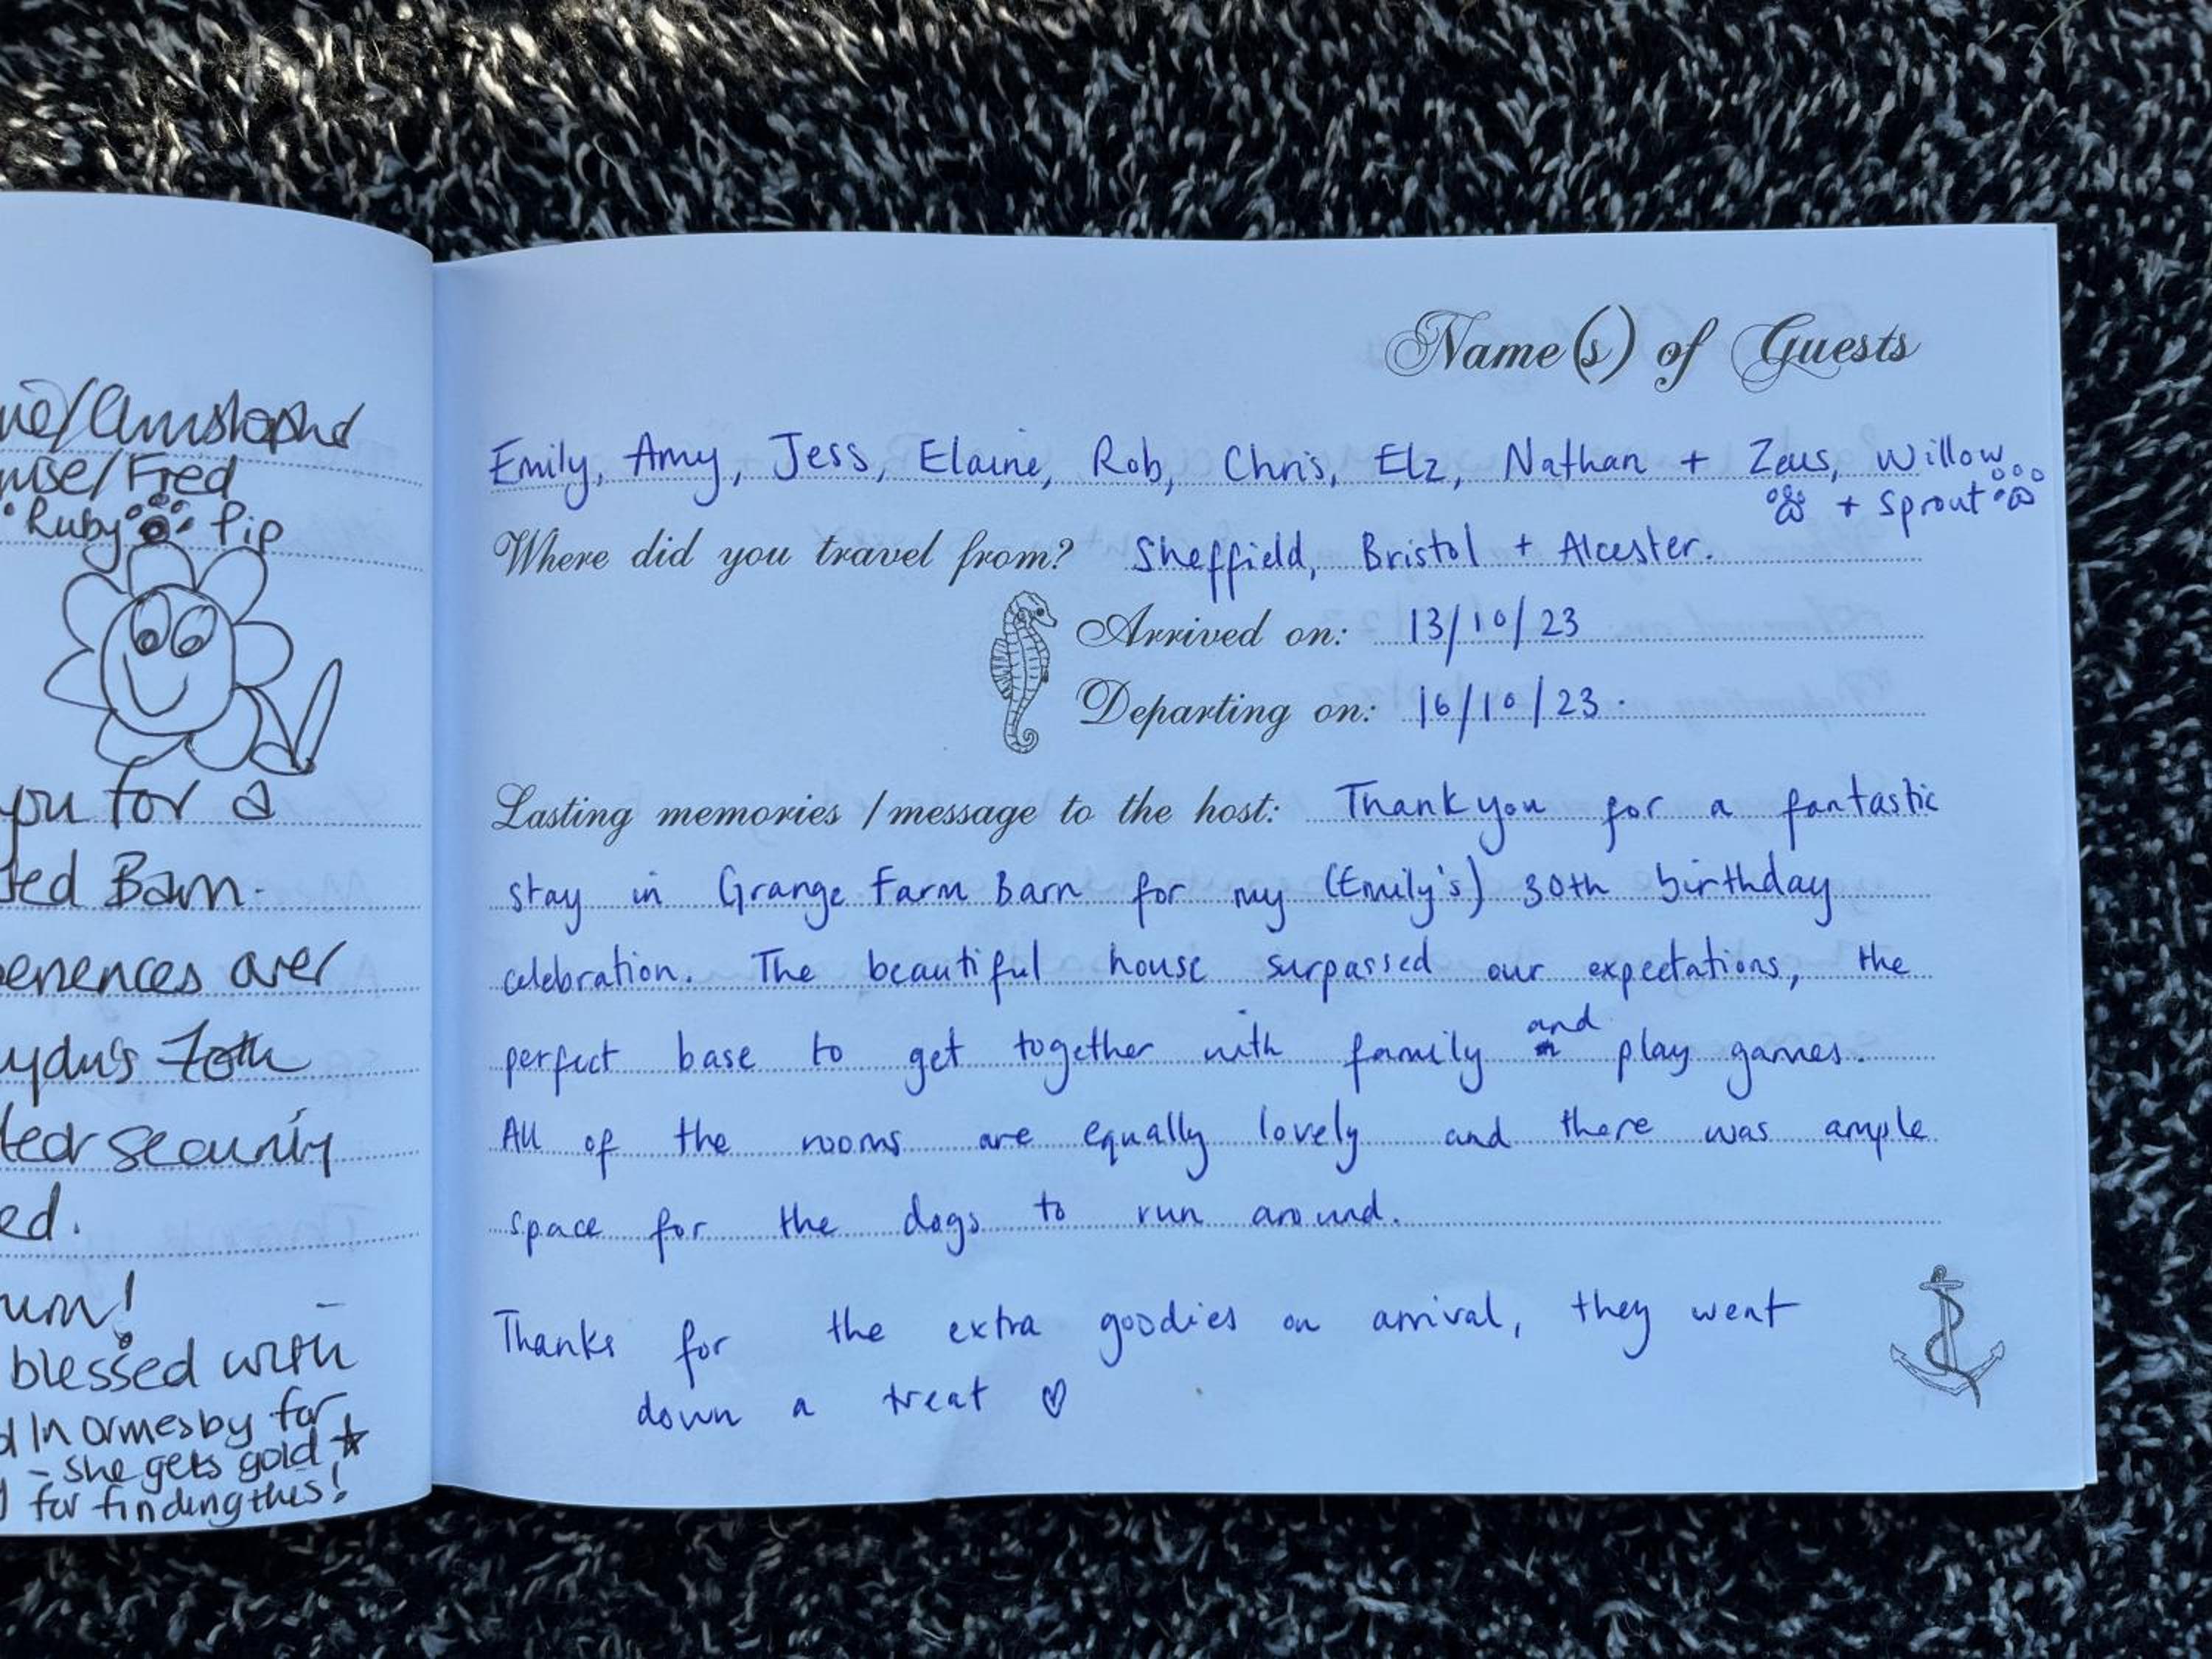 Fred
Ruby Pip
you for a
Barn.
over
70th
security
blessed with
In Ormesby for
- she gets gold
for finding this!
Name(s) of Guests
Emily, Amy, Jess, Elaine, Rob, Chris, Elz, Nathan + Zeus, Willow
+ Sprout
Where did you travel from? Sheffield, Bristol + Alcester.
Arrived on: 13/10/23
Departing on: 16/10/23.
Lasting memories / message to the host: Thank you for a fantastic
stay in Grange Farm Barn for my (Emily's) 30th birthday
celebration. The beautiful house surpassed our expectations, the
perfect base to get together with family and play games.
All of the rooms are equally lovely and there was ample
space for the dogs to run around.
Thanks for the extra goodies on arrival, they went
down a treat ♡